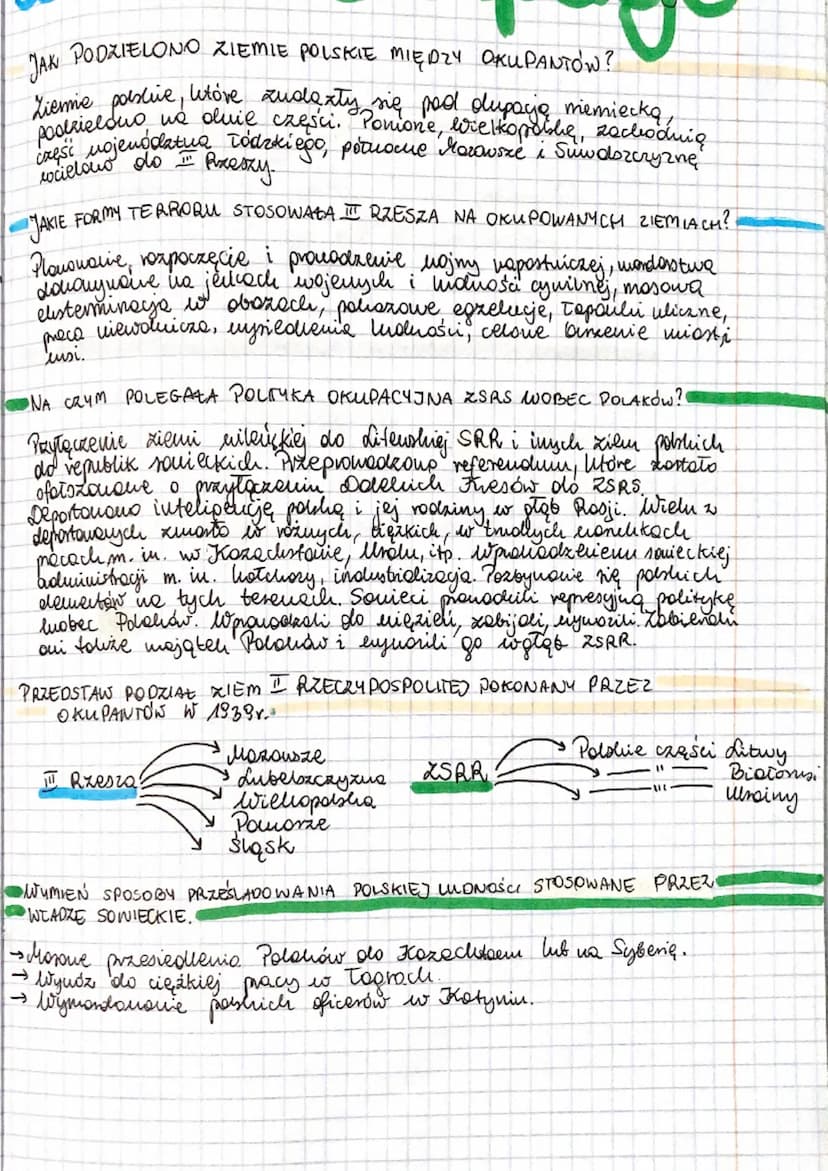 JAK PODZIELONO ZIEMIE POLSKIE MIĘDZY OKUPANTÓW?
Ziemie polskie, które znalazły się pod okupacją niemiecką,
podzielono na dwie części. Pomorze, Wielkopolskę, zachodnią
część województwa łódzkiego, północne Mazowsze i Suwalszczyznę
wcielono do III Rzeszy.
JAKIE FORMY TERRORU STOSOWAŁA III RZESZA NA OKUPOWANYCH ZIEMIACH?
Planowanie, rozpoczęcie i prowadzenie wojny napastniczej, morderstwa
dokonywane na jeńcach wojennych i ludności cywilnej, masowa
eksterminacja w obozach, pokazowe egzekucje, łapanki uliczne,
praca niewolnicza, wysiedlenia ludności, celowe burzenie miast i
wsi.
NA CZYM POLEGAŁA POLITYKA OKUPACYJNA ZSRS WOBEC POLAKÓW?
Przyłączenie ziemi wileńskiej do Litewskiej SRR i innych ziem polskich
do republik sowieckich. Przeprowadzono referendum, które zostało
sfałszowane o przyłączeniu Dalekich Kresów do ZSRS.
Deportowano inteligencję polską i jej rodziny w głąb Rosji. Wielu z
deportowanych zmarło w różnych, ciężkich, w trudnych warunkach
pracach m. in. w Kazachstanie, Uralu, itp. Wprowadzeniem sowieckiej
administracji m. in. kołchozy, industrializacja. Pozbywanie się polskich
elementów na tych terenach. Sowieci prowadzili represyjną politykę
wobec Polaków. Wprowadzali do więzień, zabijali, wywozili. Zabierali
oni także majątek Polaków i wywozili go wgłąb ZSRR.
PRZEDSTAW PODZIAŁ ZIEM II RZECZYPOSPOLITEJ DOKONANY PRZEZ
OKUPANTÓW W 1939r.
III Rzesza
Mazowsze
Lubelszczyzna
Wielkopolska
Pomorze
Śląsk
ZSRR
Polskie części Litwy
—"— Białorusi
—"'— Ukrainy
WYMIEŃ SPOSOBY PRZEŚLADOWANIA POLSKIEJ LUDNOŚCI STOSOWANE PRZEZ
WŁADZE SOWIECKIE.
→ Masowe przesiedlenia Polaków do Kazachstanu lub na Syberię.
→ Wywóz do ciężkiej pracy w łagrach.
→ Wymordowanie polskich oficerów w Katyniu.